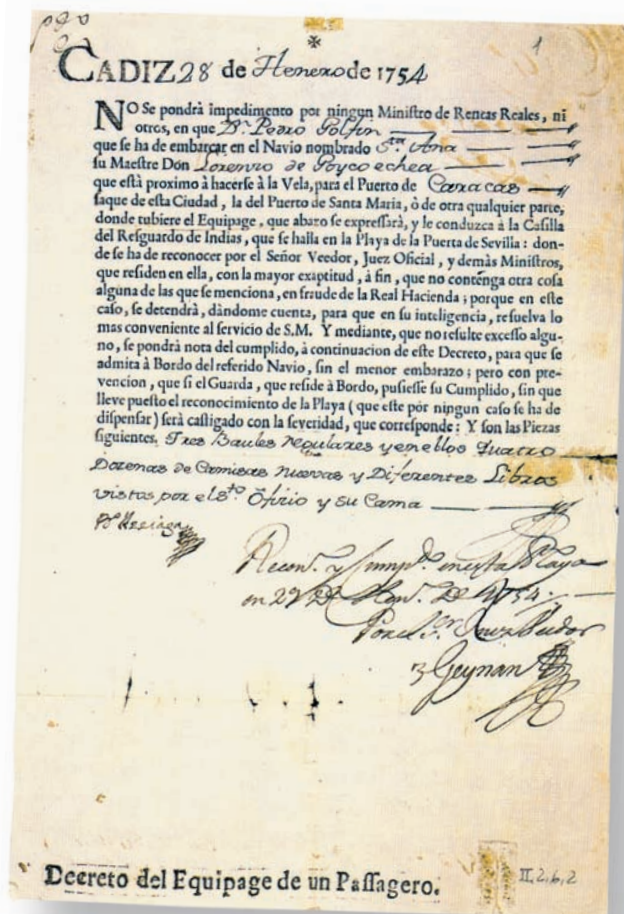 pgo
1
CADIZ 28 de Henero de 1754
NO Se pondrà impedimento por ningun Ministro de Rentas Reales, ni
otros, en que Dn. Pedro Golfin
que se ha de embarcar en el Navio nombrado Sta. Ana
su Maestre Don Lorenzo de Goycoechea
que està proximo à hacerse à la Vela, para el Puerto de Caracas
saque de esta Ciudad, la del Puerto de Santa Maria, ò de otra qualquier parte,
donde tubiere el Equipage, que abaxo se expressarà, y le conduzca à la Casilla
del Resguardo de Indias, que se halla en la Playa de la Puerta de Sevilla: don-
de se ha de reconocer por el Señor Veedor, Juez Oficial, y demàs Ministros,
que residen en ella, con la mayor exaptitud, à fin, que no contenga otra cosa
alguna de las que se menciona, en fraude de la Real Hacienda; porque en este
caso, se detendrà, dandome cuenta, para que en su inteligencia, resuelva lo
mas conveniente al servicio de S.M. Y mediante, que no resulte excesso algu-
no, se pondrà nota del cumplido, à continuacion de este Decreto, para que se
admita à Bordo del referido Navio, sin el menor embarazo; pero con pre-
vencion, que si el Guarda, que reside à Bordo, pusiesse su Cumplido, sin que
lleve puesto el reconocimiento de la Playa (que este por ningun caso se ha de
dispensar) serà castigado con la severidad, que corresponde: Y son las Piezas
siguientes. Tres Baules regulares y en ellos quatro
Dozenas de Camisas nuevas y Diferentes Libros
vistos por el Sto. Ofizio y su Cama
Recon. y Cumpdo. en esta Playa
en 29 de Hen. de 1754.
Geynan
Decreto del Equipage de un Passagero.
II, 2, 6, 2